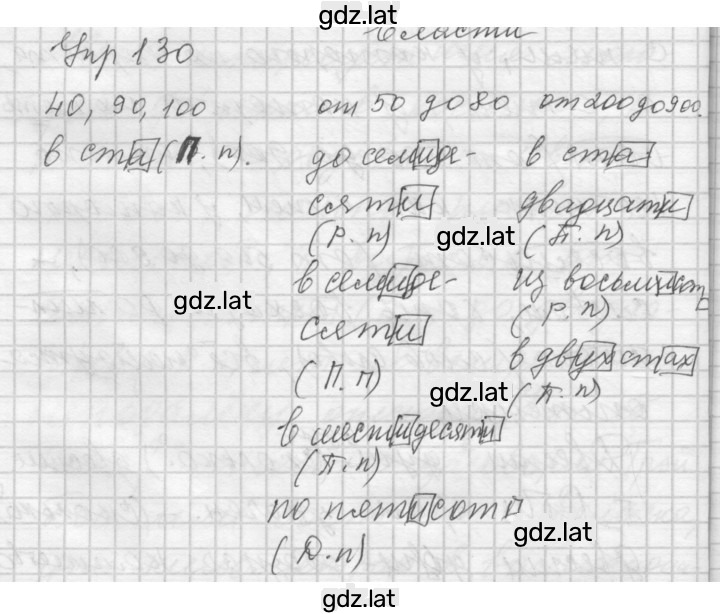 gdz.lat
области
Упр 130
40, 90, 100 от 50 до 80 от 200 до 900.
в ста (П. п). до семиде- в ста
сяти двадцати
(Р. п) gdz.lat (П. п)
в семиде- из восьмисот
gdz.lat
сяти (Р. п)
(П. п) в двухстах
gdz.lat (П. п)
в шестидесяти
(П. п)
по пятисот
gdz.lat
(Д. п)
gdz.lat